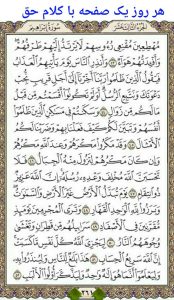 هر روز یک صفحه با کلام حق
مُهْطِعِينَ مُقْنِعِي رُءُوسِهِمْ لَا يَرْتَدُّ إِلَيْهِمْ طَرْفُهُمْ
وَأَفْئِدَتُهُمْ هَوَاءٌ ﴿٤٣﴾ وَأَنذِرِ النَّاسَ يَوْمَ يَأْتِيهِمُ الْعَذَابُ
فَيَقُولُ الَّذِينَ ظَلَمُوا رَبَّنَا أَخِّرْنَا إِلَىٰ أَجَلٍ قَرِيبٍ نُّجِبْ
دَعْوَتَكَ وَنَتَّبِعِ الرُّسُلَ أَوَلَمْ تَكُونُوا أَقْسَمْتُم مِّن قَبْلُ
مَا لَكُم مِّن زَوَالٍ ﴿٤٤﴾ وَسَكَنتُمْ فِي مَسَاكِنِ الَّذِينَ ظَلَمُوا
أَنفُسَهُمْ وَتَبَيَّنَ لَكُمْ كَيْفَ فَعَلْنَا بِهِمْ وَضَرَبْنَا لَكُمُ
الْأَمْثَالَ ﴿٤٥﴾ وَقَدْ مَكَرُوا مَكْرَهُمْ وَعِندَ اللَّهِ مَكْرُهُمْ
وَإِن كَانَ مَكْرُهُمْ لِتَزُولَ مِنْهُ الْجِبَالُ ﴿٤٦﴾ فَلَا
تَحْسَبَنَّ اللَّهَ مُخْلِفَ وَعْدِهِ رُسُلَهُ إِنَّ اللَّهَ عَزِيزٌ
ذُو انتِقَامٍ ﴿٤٧﴾ يَوْمَ تُبَدَّلُ الْأَرْضُ غَيْرَ الْأَرْضِ وَالسَّمَاوَاتُ
وَبَرَزُوا لِلَّهِ الْوَاحِدِ الْقَهَّارِ ﴿٤٨﴾ وَتَرَى الْمُجْرِمِينَ يَوْمَئِذٍ
مُّقَرَّنِينَ فِي الْأَصْفَادِ ﴿٤٩﴾ سَرَابِيلُهُم مِّن قَطِرَانٍ وَتَغْشَىٰ
وُجُوهَهُمُ النَّارُ ﴿٥٠﴾ لِيَجْزِيَ اللَّهُ كُلَّ نَفْسٍ مَّا كَسَبَتْ
إِنَّ اللَّهَ سَرِيعُ الْحِسَابِ ﴿٥١﴾ هَٰذَا بَلَاغٌ لِّلنَّاسِ وَلِيُنذَرُوا بِهِ
وَلِيَعْلَمُوا أَنَّمَا هُوَ إِلَٰهٌ وَاحِدٌ وَلِيَذَّكَّرَ أُولُو الْأَلْبَابِ ﴿٥٢﴾
٢٦١